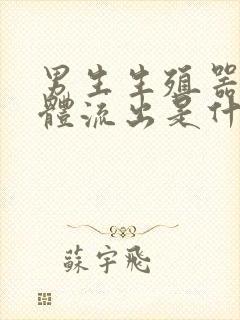 男生生殖器
體流出是什
蘇宇飛